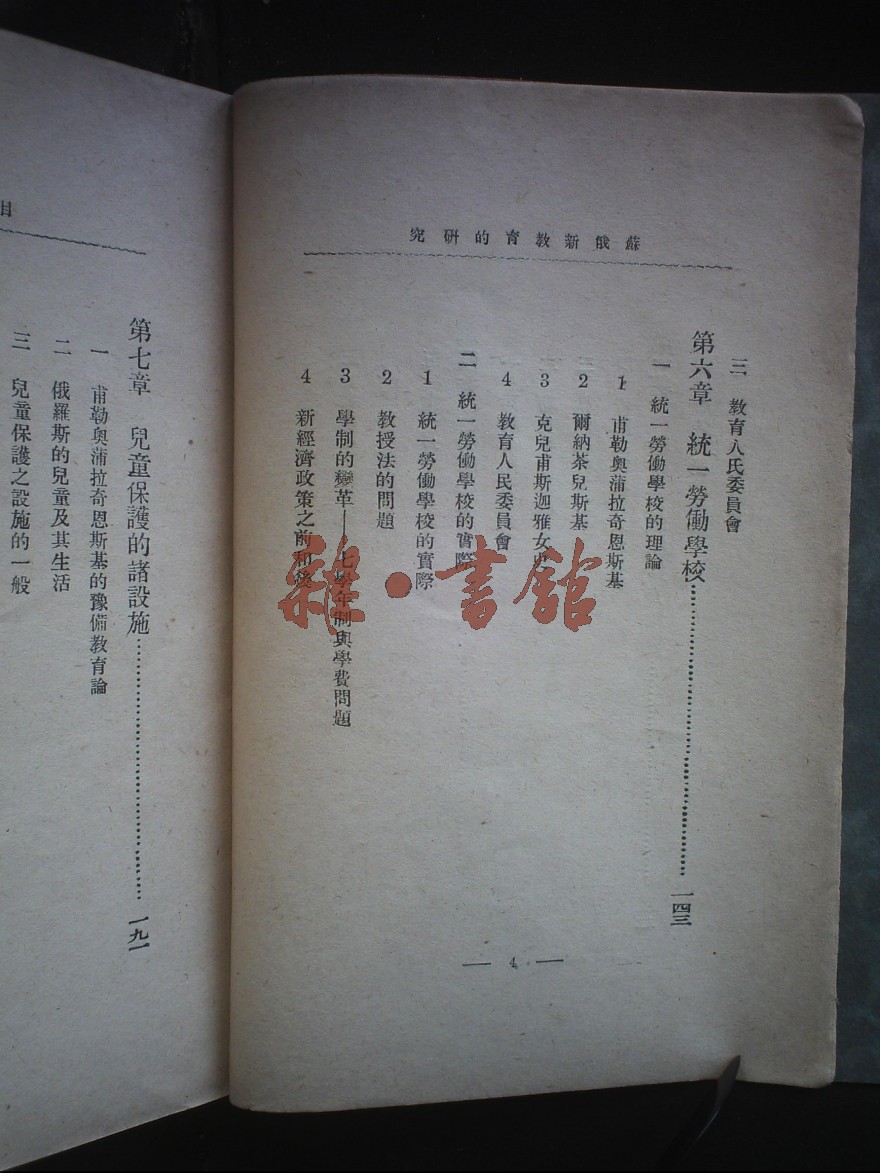 蘇俄新教育的研究
三 教育人氏委員會
第六章 統一勞働學校 一四三
一 統一勞働學校的理論
1 甫勒奧蒲拉奇恩斯基
2 爾納茶兒斯基
3 克兒甫斯迦雅女史
4 教育人民委員會
二 統一勞働學校的實際
1 統一勞働學校的實際
2 教授法的問題
3 學制的變革——七學年制與學費問題
4 新經濟政策之前和後
— 4 —
目
第七章 兒童保護的諸設施 一九一
一 甫勒奧蒲拉奇恩斯基的豫備教育論
二 俄羅斯的兒童及其生活
三 兒童保護之設施的一般
雜·書館